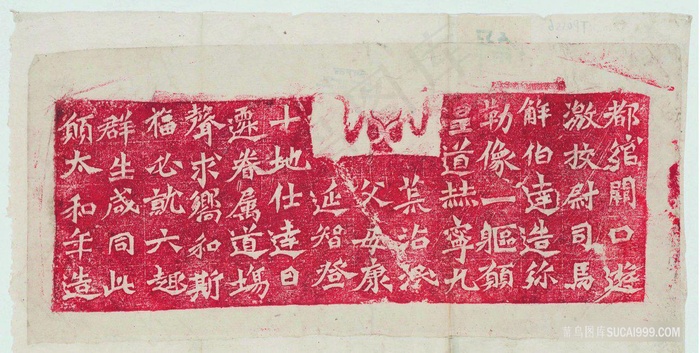 都綰闕口遊
激校尉司馬
解伯逹造弥
勒像一軀願
皇道赫寧九
荒沾澄
父母康
延智登
十地仕逹日
遷眷属道場
聲求嚮和斯
福必就六趣
群生咸同此
願太和年造
菜鸟图库SUCAI999.COM